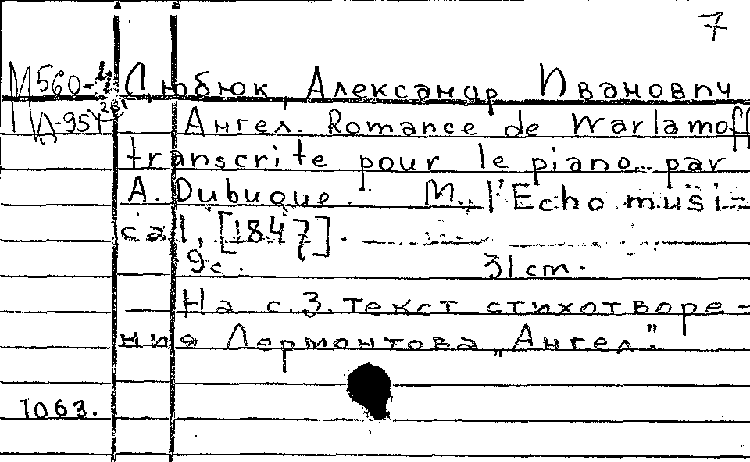 7
М560-4 Дюбюк, Александр Иванович
Ангел. Romance de Warlamoff
transcrite pour le piano par
A. Dubuque. М., l'Echo musi-
cal, [1847].
9с. 31cm.
На с.3. текст стихотворе-
ния Лермонтова „Ангел".
1063.